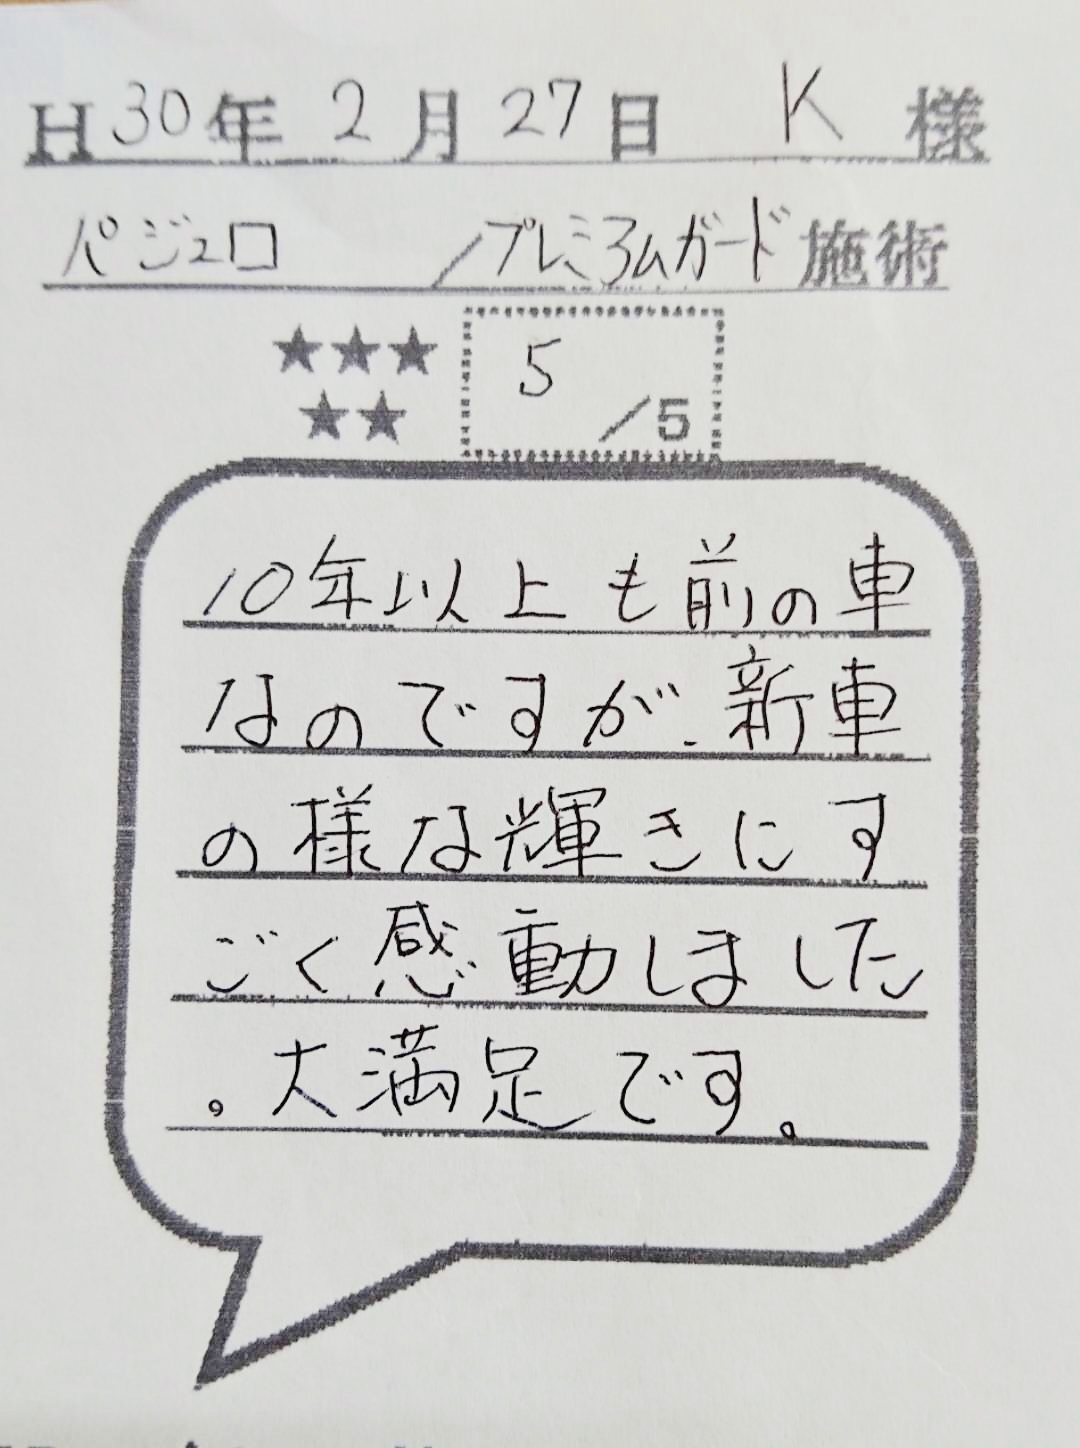 H30年2月27日 K様
パジェロ /プレミアムガード施術
★★★
★★
5/5
10年以上も前の車
なのですが、新車
の様な輝きにす
ごく感動しました
。大満足です。